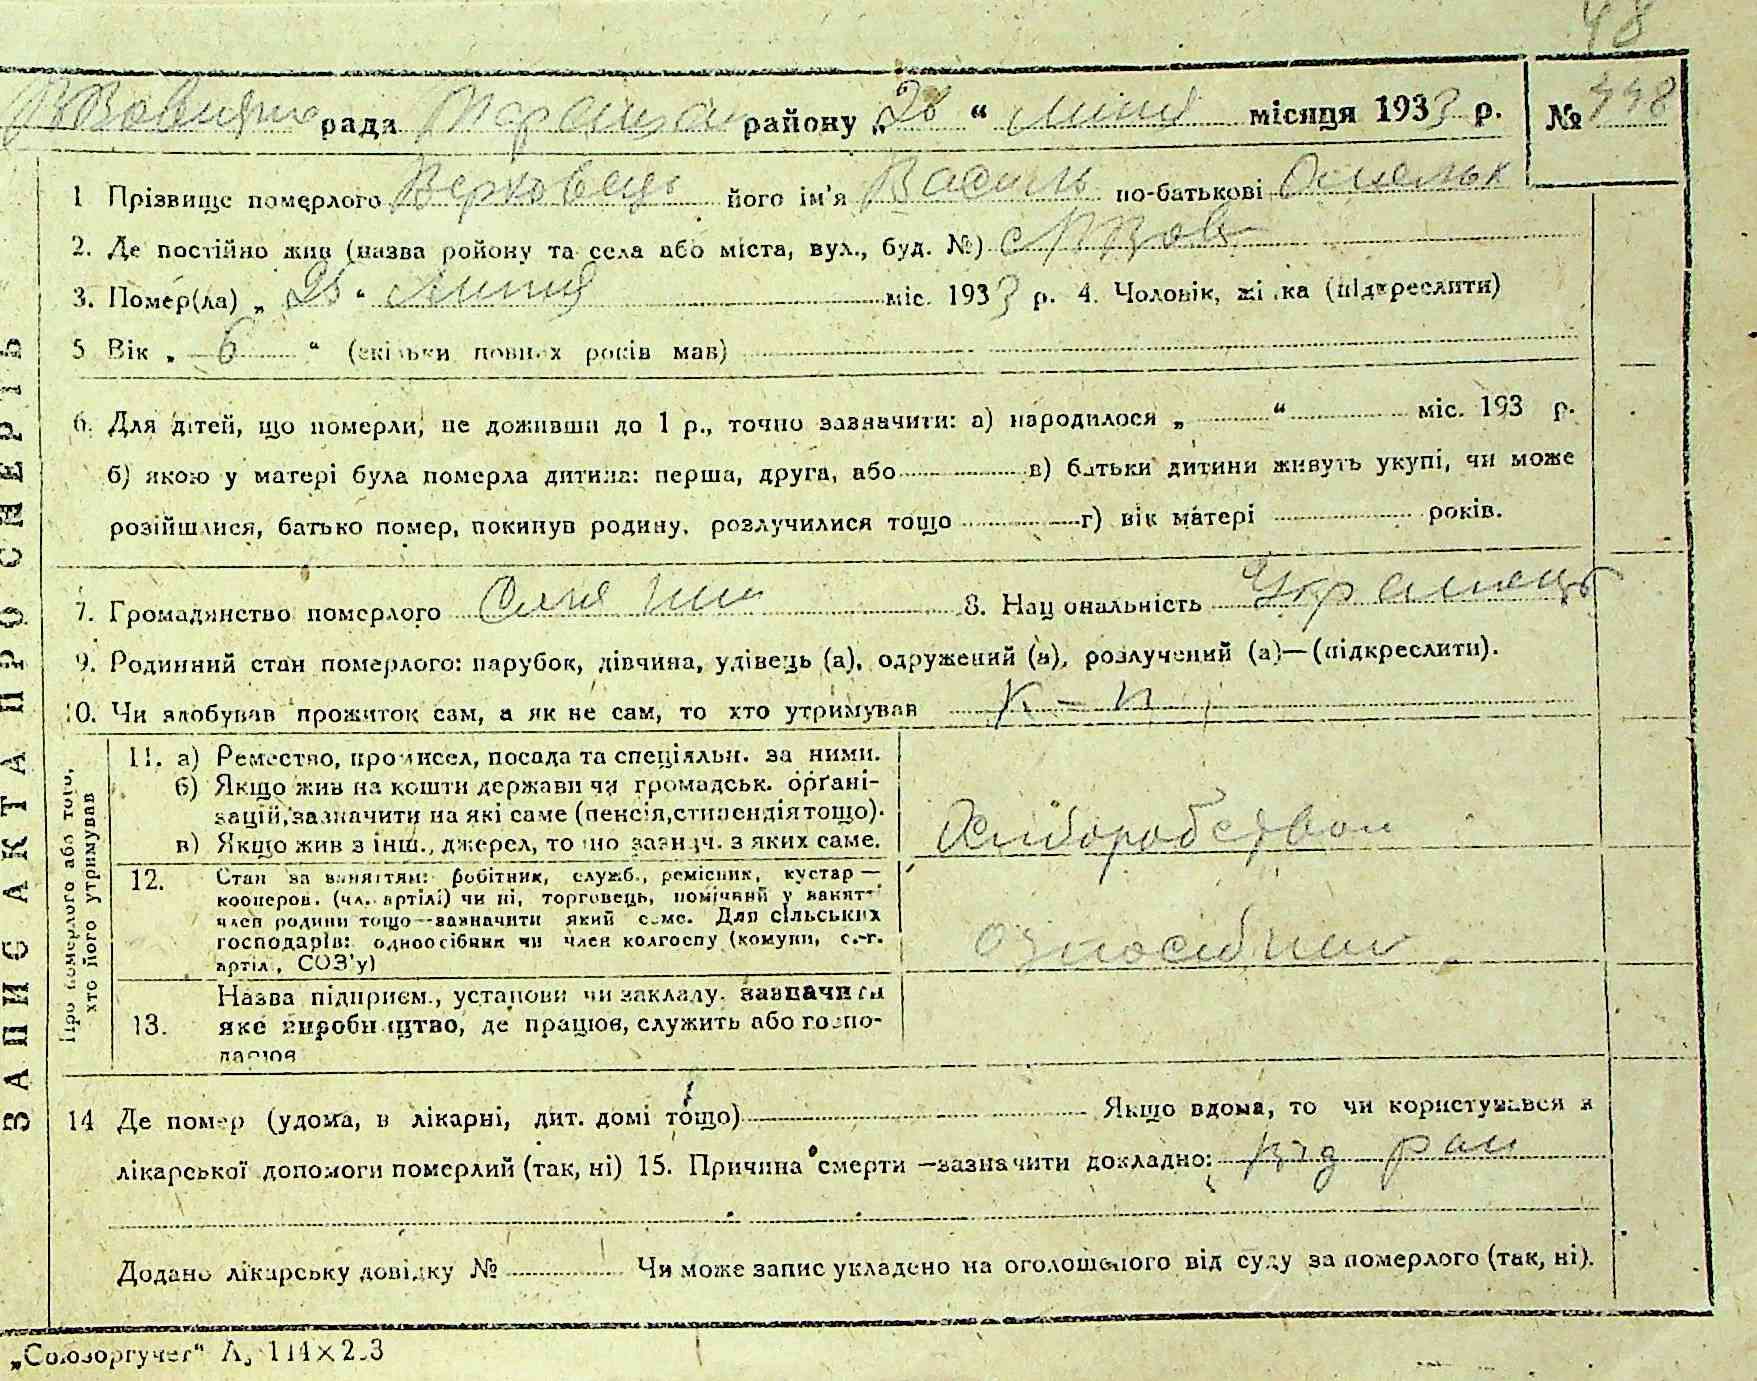 48
рада района районy „26“ липня місяця 1933 р. № 448
1 Прізвище померлого Верховець його ім'я Василь по-батькові
2. Де постійно жив (назва ройону та села або міста, вул., буд. №) с
3. Помер(ла) „25“ липня міс. 1933 р. 4. Чоловік, жінка (підкреслити)
5 Вік „6“ (скільки повних років мав)
6. Для дітей, що померли, не доживши до 1 р., точно зазначити: а) народилося „ “ міс. 193 р.
б) якою у матері була померла дитина: перша, друга, або в) батьки дитини живуть укупі, чи може
розійшлися, батько помер, покинув родину, розлучилися тощо г) вік матері років.
7. Громадянство померлого 8. Національність Украінець
9. Родинний стан померлого: парубок, дівчина, удівець (а), одружений (а), розлучений (а)—(підкреслити).
10. Чи здобував прожиток сам, а як не сам, то хто утримував
Про померлого або того, хто його утримував
11. а) Ремество, промисел, посада та спеціяльн. за ними.
б) Якщо жив на кошти держави чи громадськ. орґані-
зацій, зазначити на які саме (пенсія, стипендія тощо).
в) Якщо жив з інш., джерел, то що зазнач. з яких саме. Хліборобством
12. Стан за заняттям: робітник, служб., ремісник, кустар —
кооперов. (чл. артілі) чи ні, торговець, помічний у занятт
член родини тощо—зазначити який саме. Для сільських
господарів: одноосібник чи член колгоспу (комуни, с.-г. одноосібник
артіл., СОЗ'у)
13. Назва підприєм., установи чи закладу. зазначити
яке виробництво, де працює, служить або госпо-
дарює
14 Де помер (удома, в лікарні, дит. домі тощо) Якщо вдома, то чи користувався з
лікарської допомоги померлий (так, ні) 15. Причина смерти —зазначити докладно: від ран
Додано лікарську довідку № Чи може запис укладено на оголошеного від суду за померлого (так, ні).
ЗАПИС АКТА ПРО СМЕРТЬ
„Союзоргучет“